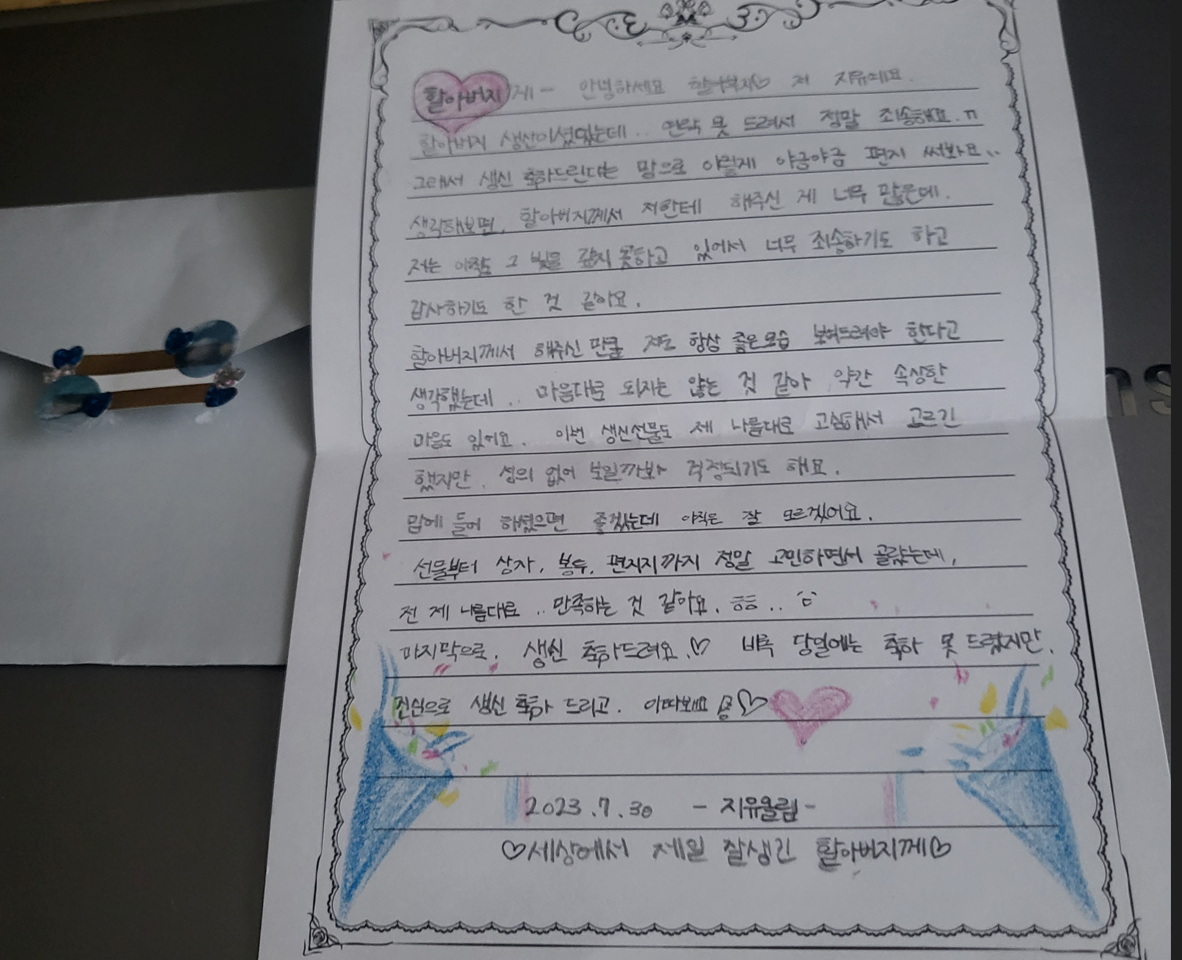 할아버지께- 안녕하세요 할아버지♡ 저 지유예요.
할아버지 생신이셨었는데.. 연락 못 드려서 정말 죄송해요.ㅠ
그래서 생신 축하드린다는 맘으로 이렇게 야금야금 편지 써봐요..
생각해보면, 할아버지께서 저한테 해주신 게 너무 많은데,
저는 아직도 그 빚을 갚지 못하고 있어서 너무 죄송하기도 하고
감사하기도 한 것 같아요.
할아버지께서 해주신 만큼 저도 항상 좋은모습 보여드려야 한다고
생각했는데.. 마음대로 되지는 않는 것 같아 약간 속상한
마음도 있어요. 이번 생신선물도 제 나름대로 고심해서 고르긴
했지만, 성의 없어 보일까봐 걱정되기도 해요.
맘에 들어 하셨으면 좋겠는데 아직은 잘 모르겠어요.
선물부터 상자, 봉투, 편지지까지 정말 고민하면서 골랐는데,
전 제 나름대로.. 만족하는 것 같아요. ㅎㅎ..
마지막으로, 생신 축하드려요.♡ 비록 당일에는 축하 못 드렸지만,
진심으로 생신 축하 드리고, 이따봬요 ♡
2023.7.30 -지유올림-
♡세상에서 제일 잘생긴 할아버지께♡
ns